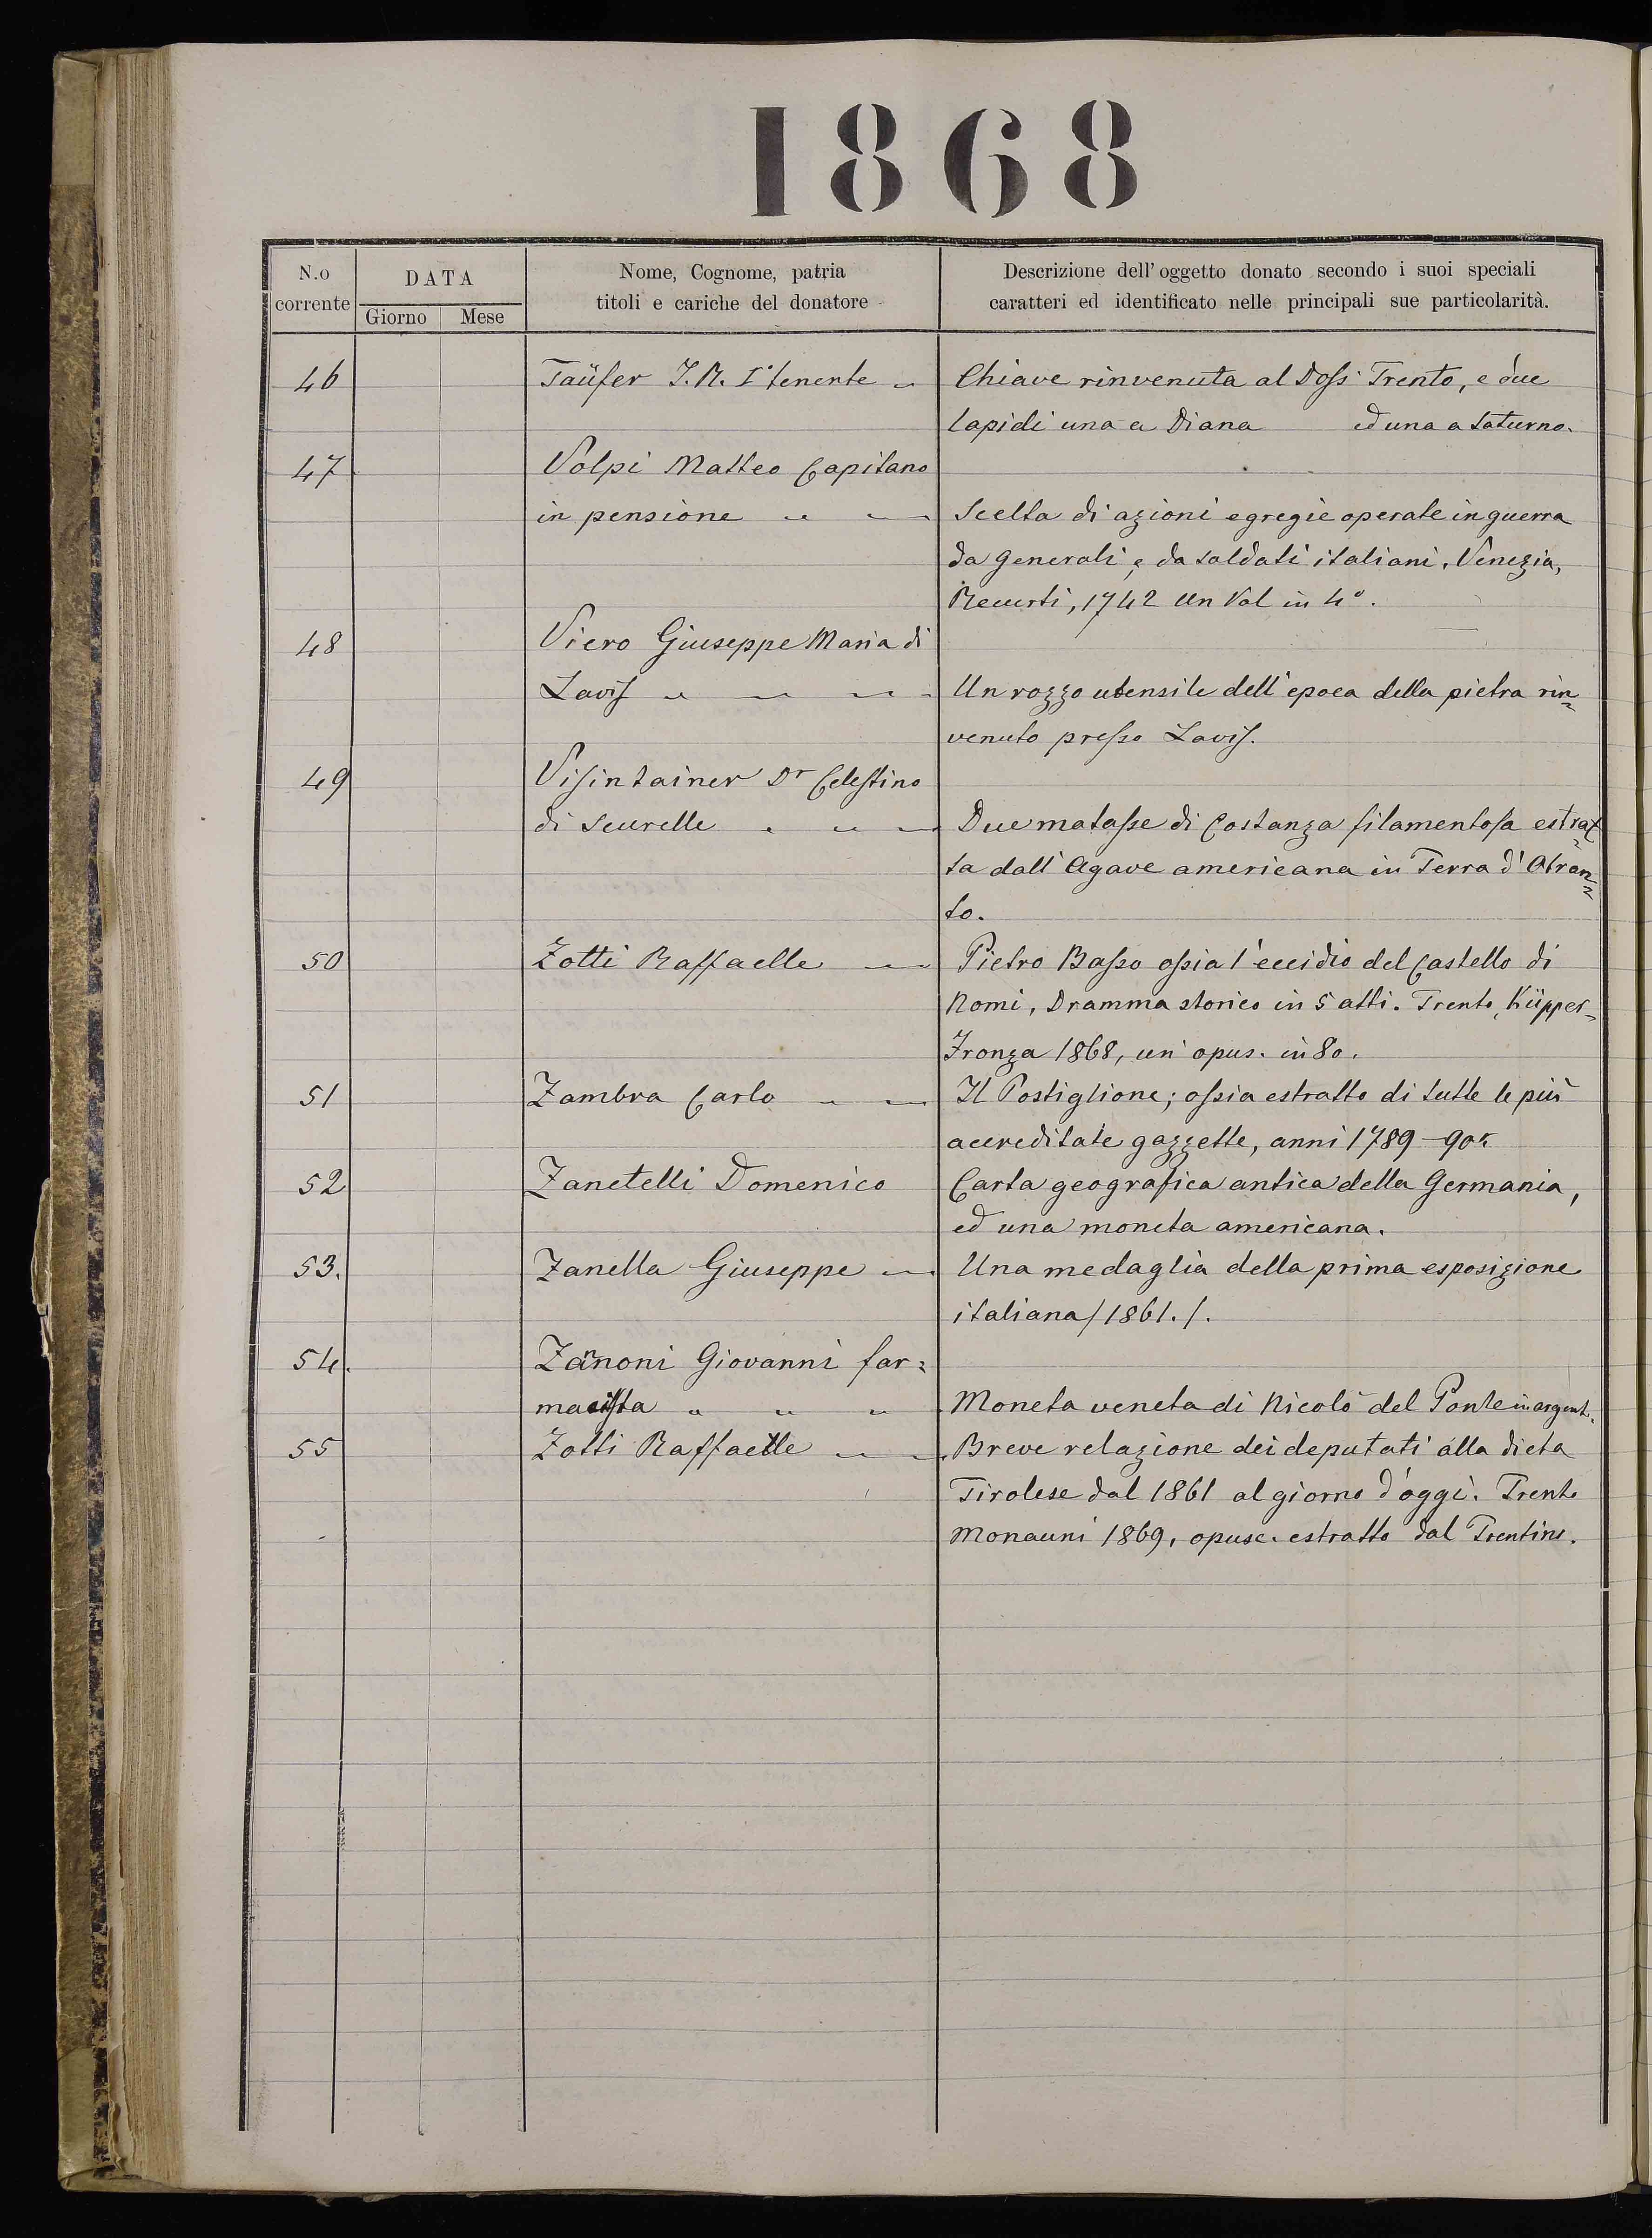 1868
N.o corrente
DATA
Giorno Mese
Nome, Cognome, patria
titoli e cariche del donatore
Descrizione dell'oggetto donato secondo i suoi speciali
caratteri ed identificato nelle principali sue particolarità.
46 Taüfer I. R. I° tenente " Chiave rinvenuta al Doſs Trento, e due
lapidi una a Diana ed una a Saturno.
47 Volpi Matteo Capitano
in pensione " " Scelta di azioni egregie operate in guerra
da generali e da soldati italiani. Venezia,
Recurti, 1742 Un Vol in 4°.
48 Viero Giuseppe Maria di
Laviſ " " " Un rozzo utensile dell'epoca della pietra rin=
venuto preſso Laviſ.
49 Viſintainer Dr Celeſtino
di Scurelle " " " Due mataſse di Costanza filamentoſa estrat=
ta dall'Agave americana in Terra d'Otran=
to.
50 Zotti Raffaelle " Pietro Baſso oſsia l'eccidio del Castello di
Nomi, Dramma storico in 5 atti. Trento, Küpper=
Fronza 1868, un opus. in 8o.
51 Zambra Carlo " " Il Postiglione; oſsia estratto di tutte le più
accreditate gazzette, anni 1789-90.
52 Zanetelli Domenico Carta geografica antica della Germania,
ed una moneta americana.
53. Zanella Giuseppe " Una medaglia della prima esposizione
italiana /1861./.
54. Zanoni Giovanni far=
maciſta " " " Moneta veneta di Nicolò del Ponte in argent.
55 Zotti Raffaelle " " Breve relazione dei deputati alla dieta
Tirolese dal 1861 al giorno d'oggi. Trento
Monauni 1869, opusc. estratto dal Trentino.